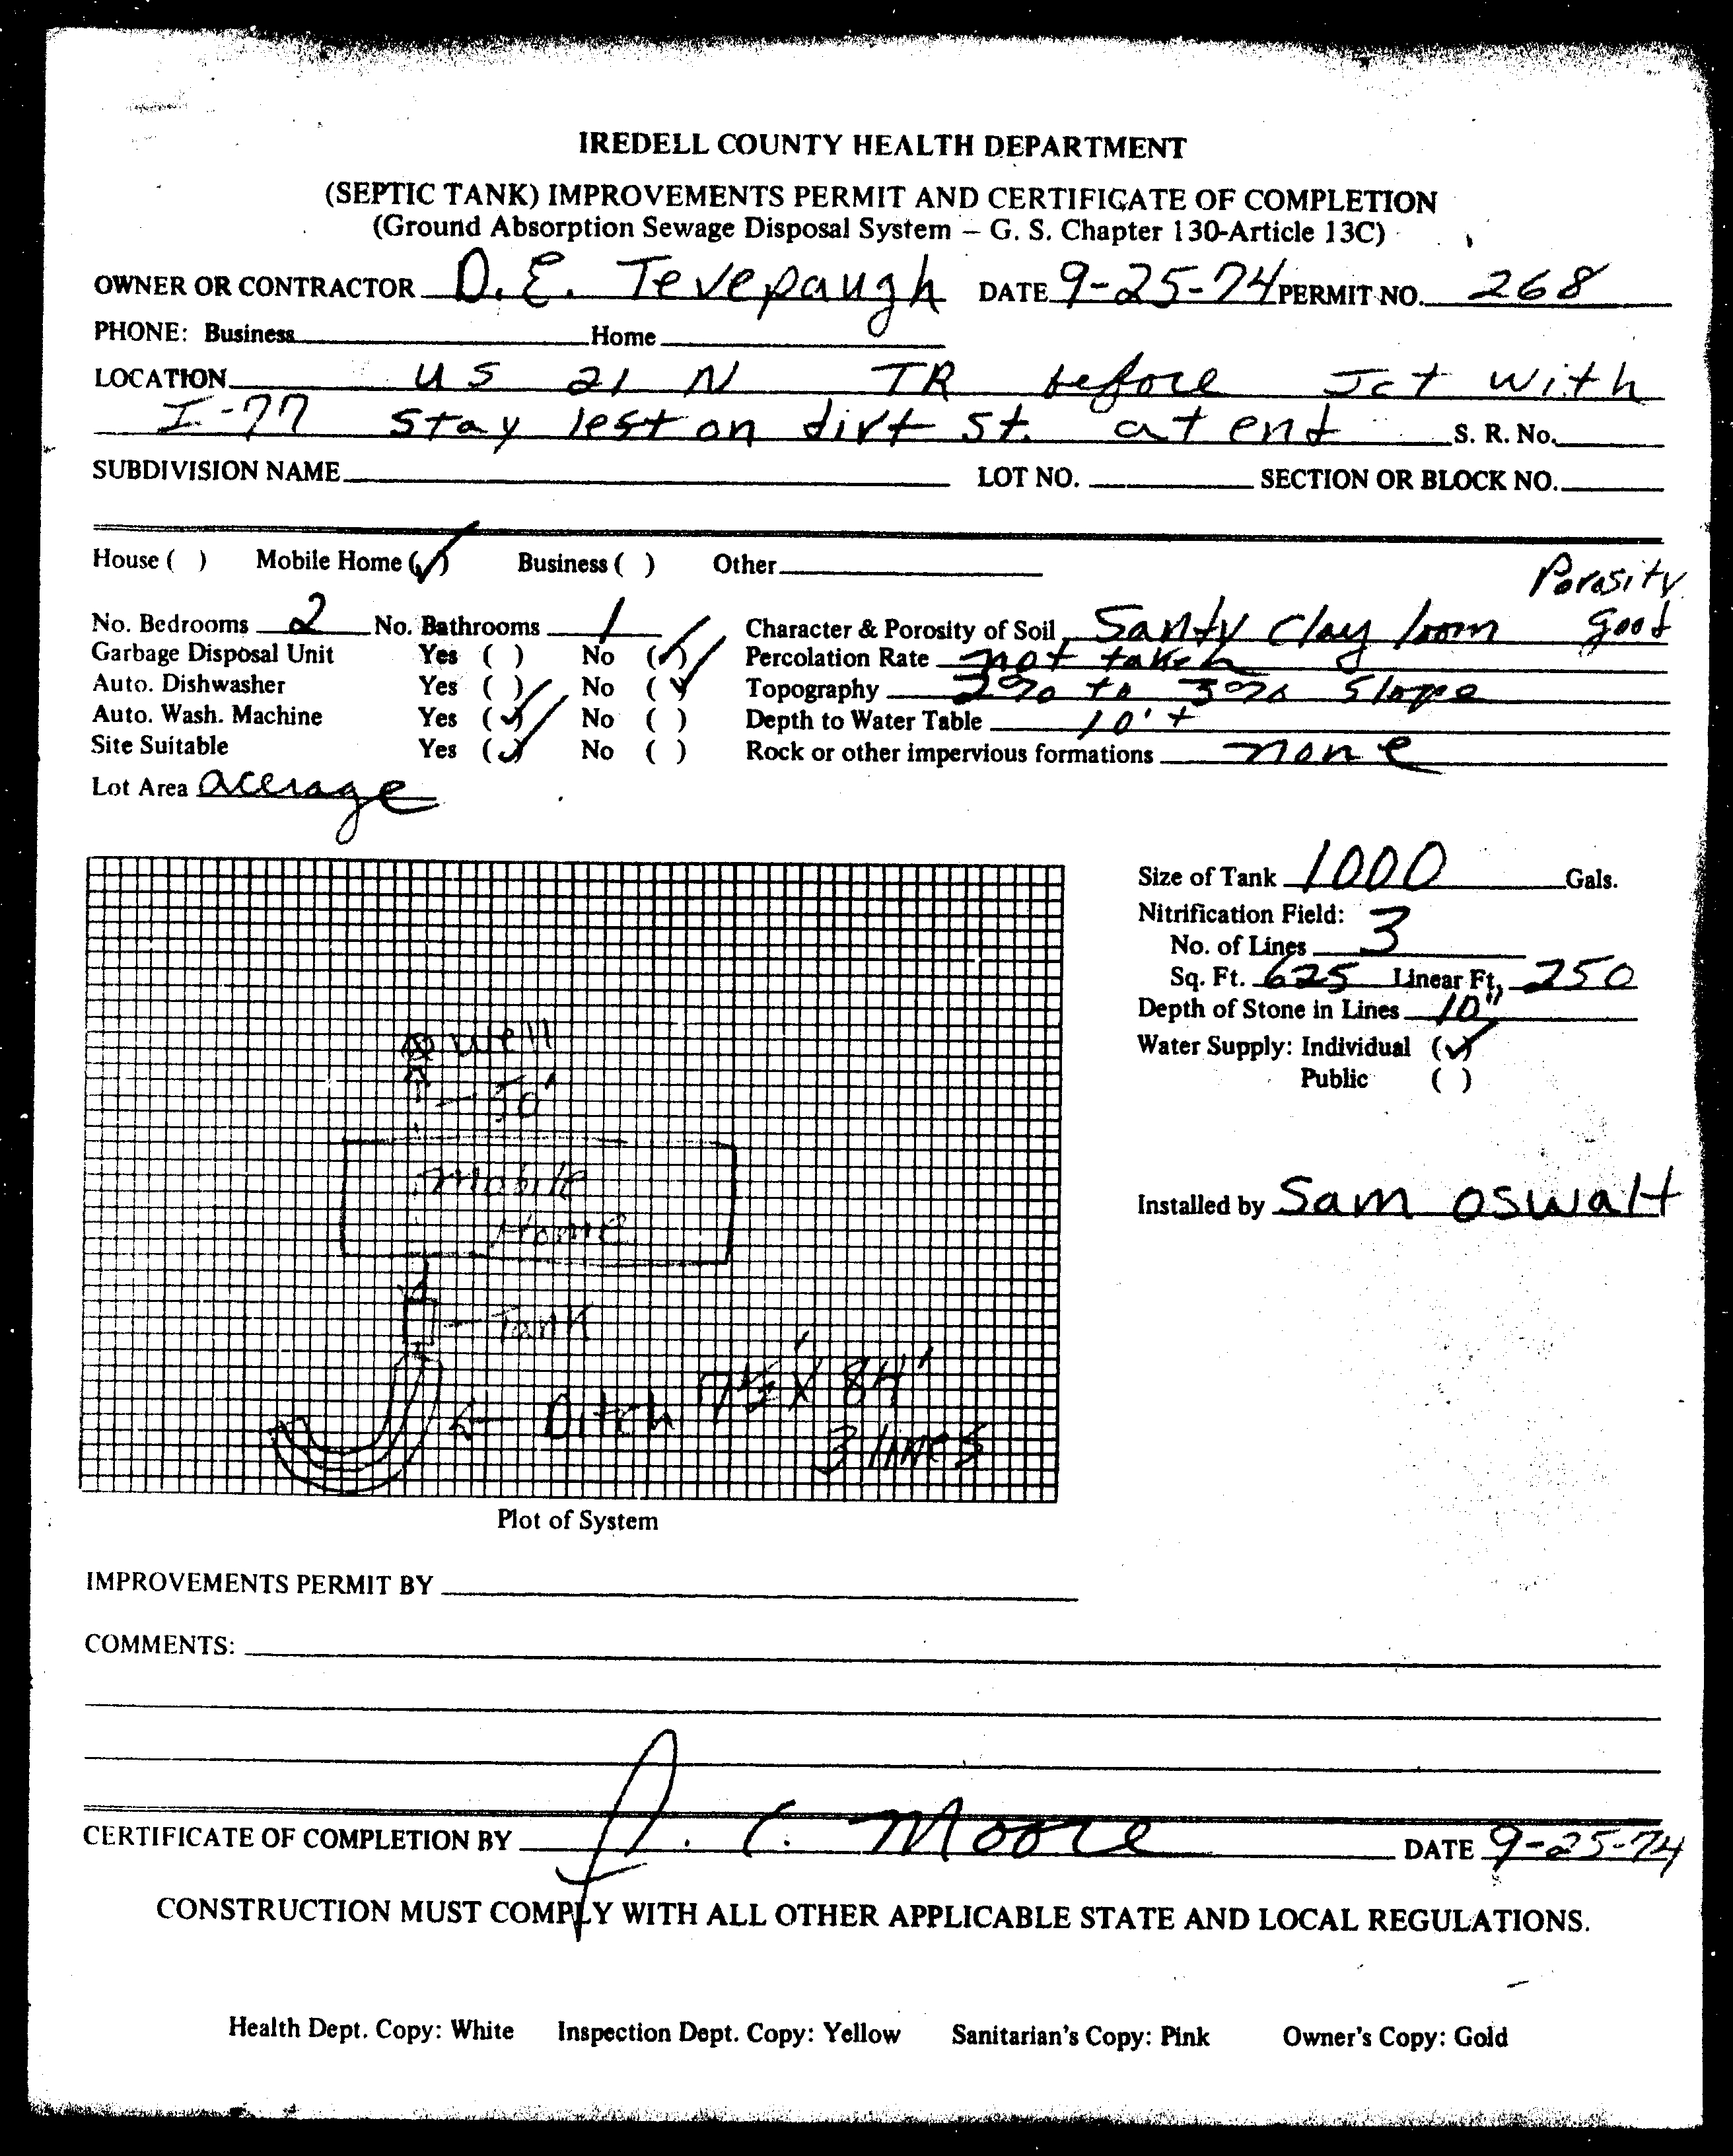 IREDELL COUNTY HEALTH DEPARTMENT
(SEPTIC TANK) IMPROVEMENTS PERMIT AND CERTIFICATE OF COMPLETION
(Ground Absorption Sewage Disposal System – G. S. Chapter 130-Article 13C)
OWNER OR CONTRACTOR D. E. Tevepaugh DATE 9-25-74 PERMIT NO. 268
PHONE: Business Home
LOCATION US 21 N TR before Jct with
I-77 stay left on dirt St. at end S. R. No.
SUBDIVISION NAME LOT NO. SECTION OR BLOCK NO.
House ( ) Mobile Home (✓) Business ( ) Other
Porosity
No. Bedrooms 2 No. Bathrooms 1 Character & Porosity of Soil Santy Clay loom good
Garbage Disposal Unit Yes ( ) No (✓) Percolation Rate not taken
Auto. Dishwasher Yes ( ) No (✓) Topography 2% to 3% Slope
Auto. Wash. Machine Yes (✓) No ( ) Depth to Water Table 10' +
Site Suitable Yes (✓) No ( ) Rock or other impervious formations none
Lot Area accrage
Size of Tank 1000 Gals.
Nitrification Field:
No. of Lines 3
Sq. Ft. 625 Linear Ft. 250
Depth of Stone in Lines 10"
Water Supply: Individual (✓)
Public ( )
Installed by Sam Oswalt
well
50'
Mobile
Home
Tank
Ditch 7½' X 84'
3 lines
Plot of System
IMPROVEMENTS PERMIT BY
COMMENTS:
CERTIFICATE OF COMPLETION BY J. C. Moore DATE 9-25-74
CONSTRUCTION MUST COMPLY WITH ALL OTHER APPLICABLE STATE AND LOCAL REGULATIONS.
Health Dept. Copy: White Inspection Dept. Copy: Yellow Sanitarian's Copy: Pink Owner's Copy: Gold